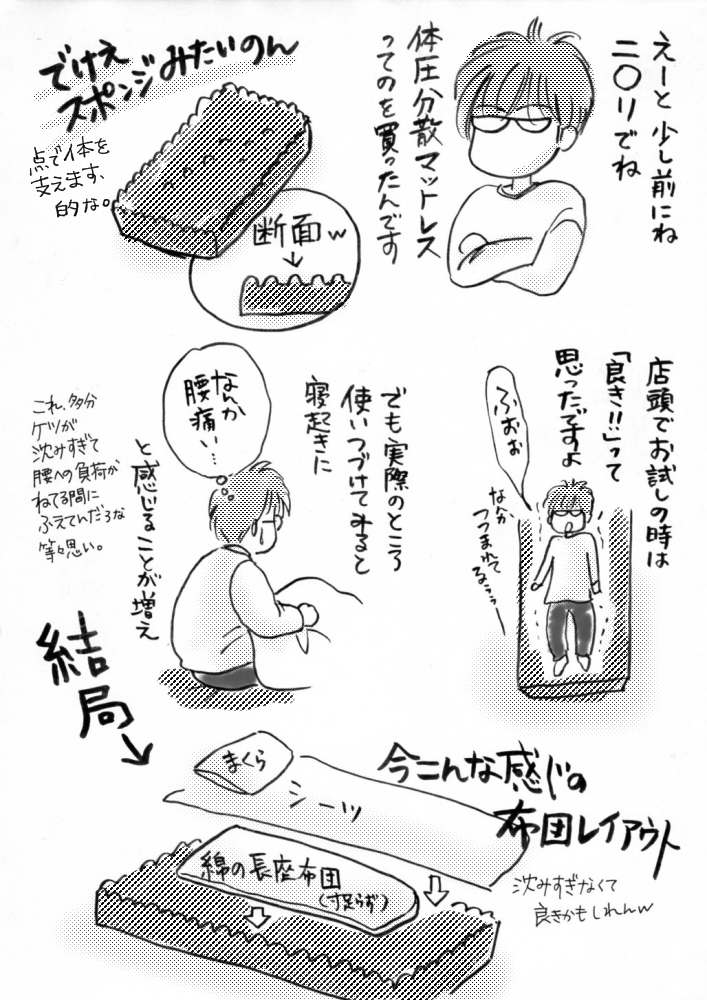 えーと 少し前にね
ニ〇リでね
体圧分散マットレス
ってのを買ったんです
でけえ
スポンジみたいのん
点で体を
支えます、
的な。
断面w
店頭でお試しの時は
「良き!!」って
思ったですよ
ふおぉ
なんか
つつまれて
るぅぅぅー
でも実際のところ
使いつづけてみると
寝起きに
なんか
腰痛い…
と感じることが増え
これ、多分
ケツが
沈みすぎて
腰への負荷が
ねてる間に
ふえてんだろな
等々思い。
結局
今こんな感じの
布団レイアウト
まくら
シーツ
綿の長座布団
(寸足らず)
沈みすぎなくて
良きかもしれんw